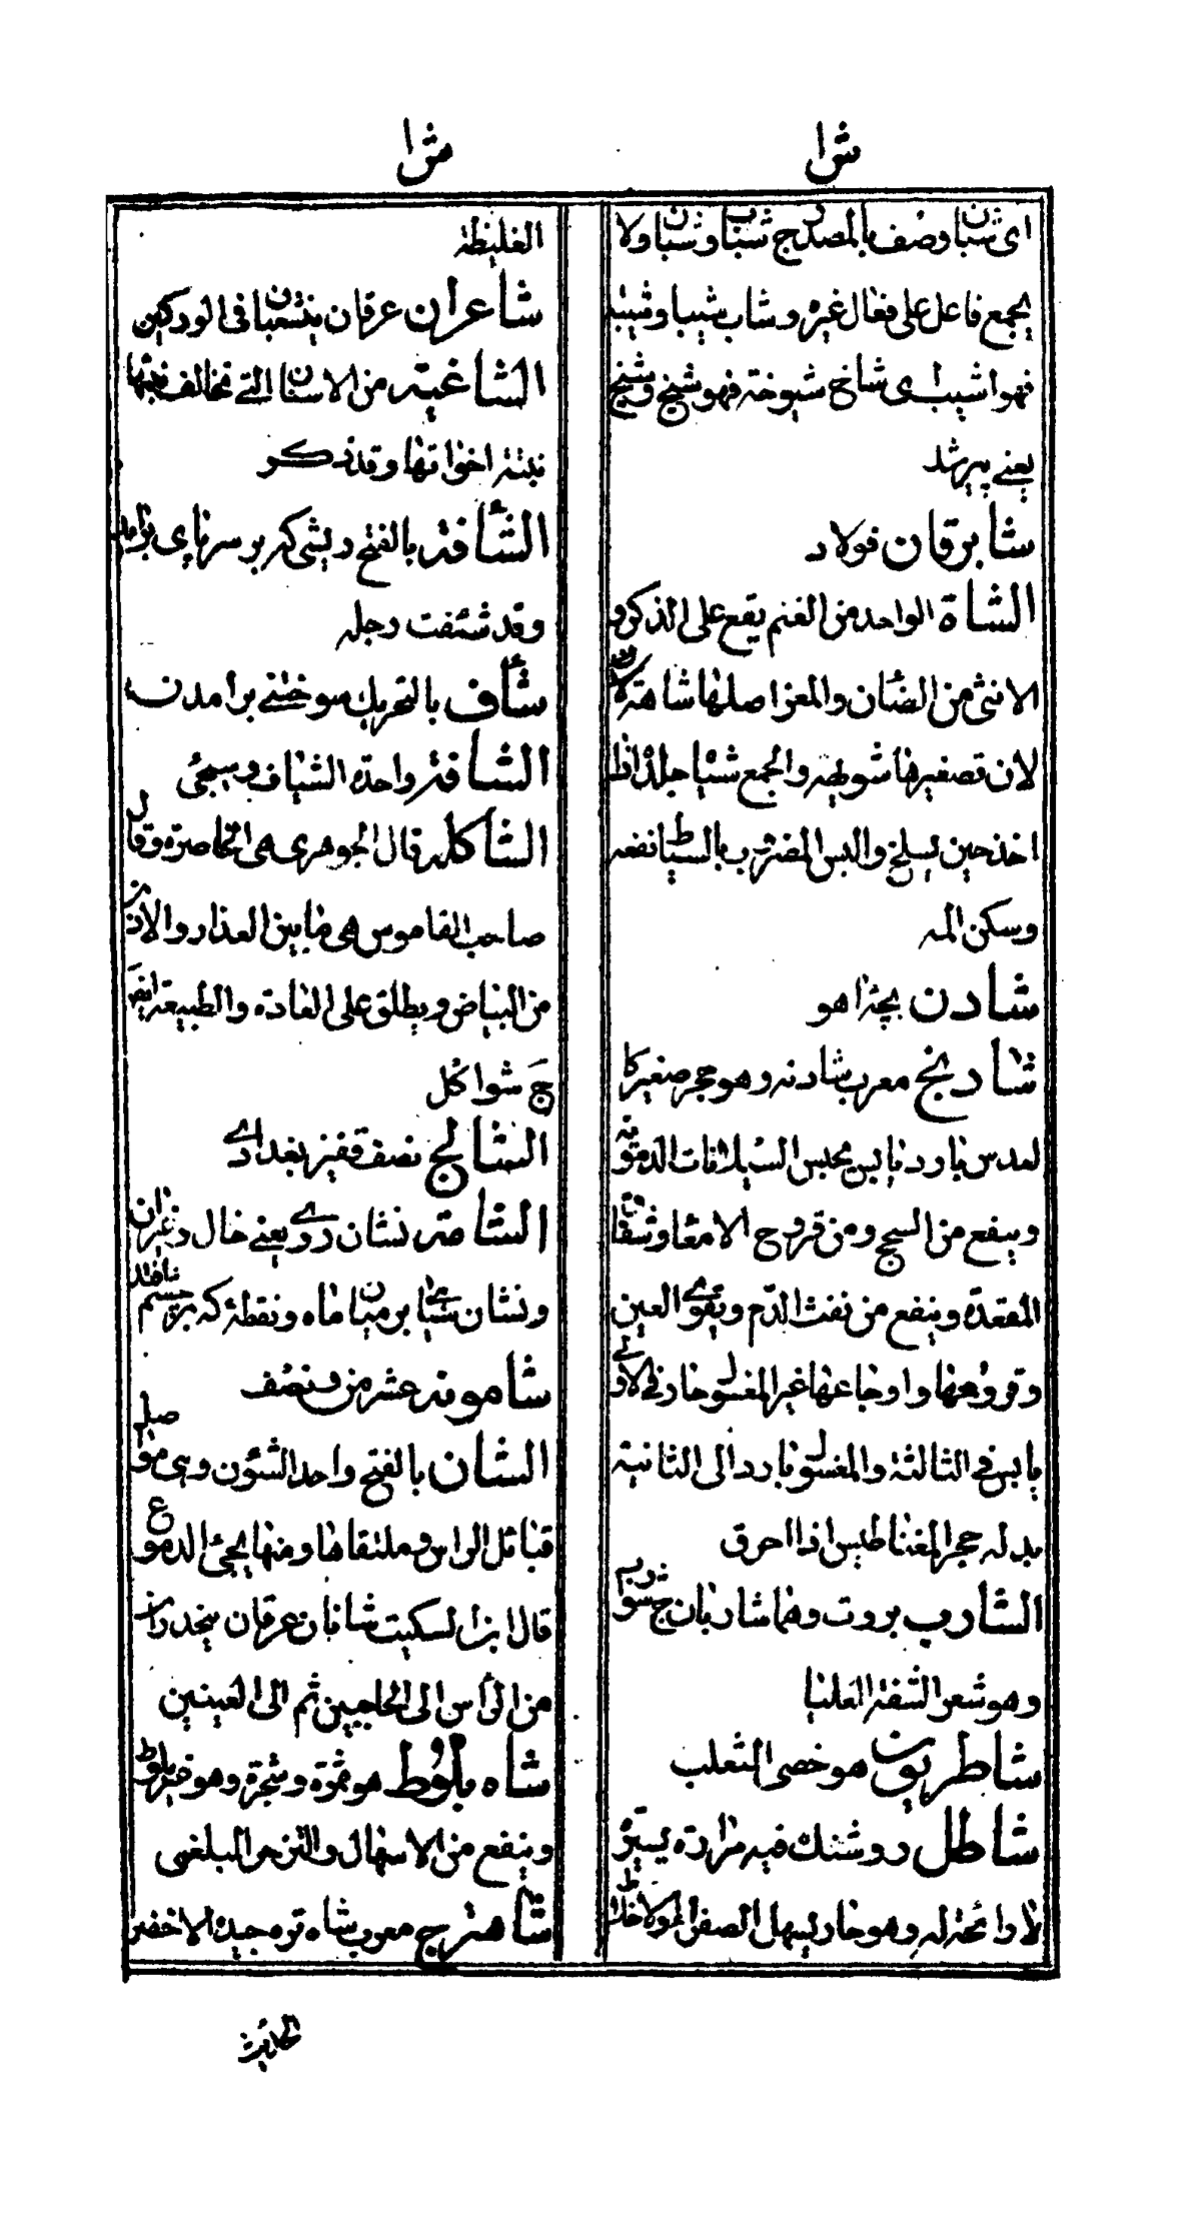 شا
شا
ای شبان وصف بالمصدر ج شباب وشبان ولا
یجمع فاعل علی فعال غیره وشاب شیبا وشیبة
فهو اشیب ای شاخ شیوخة فهو شیخ وشیخ
یعنے پیر شد
شابرقان فولاد
الشاة الواحد من الغنم یقع علی الذکر و
الانثی من الضان والمعز اصلها شاهة
لان تصغیرها شویهة والجمع شیاه جلد اذا
اخذ حین یسلخ والبس المضروب بالسیاط نفعه
وسکن المه
شادن بچه اهو
شادنج معرب شادنه وهو حجر صغیر کا
لعدس بارد یابس محبس السیلانات الدمویة
وینفع من السحج ومن قروح الامعا وشقاق
المقعدة وینفع من نفث الدم ویقوی العین
وقروحها واوجاعها غیر المغسول حار فی الاولے
یابس فی الثالثة والمغسول بارد الی الثانیة
بدله حجر المغناطیس اذا احرق
الشارب بروت وهما شاربان ج شوارب
وهو شعر الشفة العلیا
شاطریون هو خصی الثعلب
شاطل دوشنك فیه مرارة یسیرة
لا رائحة له وهو حار یسهل الصفرا
الغلیظة
شاعران عرقان ینشعبان فی الورکین
الشاغیة من الاسنان التے تخالف نبتها
نبتة اخواتها وقد ذکر
الشأفة بالفتح ریشی که بر سرنای پا برامد
وقد شئفت رجله
شأف بالتحریك سوختنے برامدن
الشافة واحدة الشیاف وسیجئ
الشاکلة قال الجوهری هی الخاصرة وقال
صاحب القاموس هی ما بین العذار والاذن
من البیاض ویطلق علی العادة والطبیعة ایضا
ج شواکل
الشالج نصف قفیز بغدادے
الشامة نشان روے یعنے خال وغیران
ونشان سیاهے بر میان ماه ونقطه که بر جسم افتد
شامونه عشر من ونصف
الشان بالفتح واحد الشئون وهی مواصل
قبائل الراس وملتقاها ومنها یجئ الدموع
قال ابن السکیت شانان عرقان ینحدران
من الرأس الی الحاجبین ثم الی العینین
شاه بلوط هو ثمرة وشجرة وهو خیر بلوط
وینفع من الاسهال والتزحر البلغمی
شاهترج معرب شاه تره جیده الاخضر
الحدیث